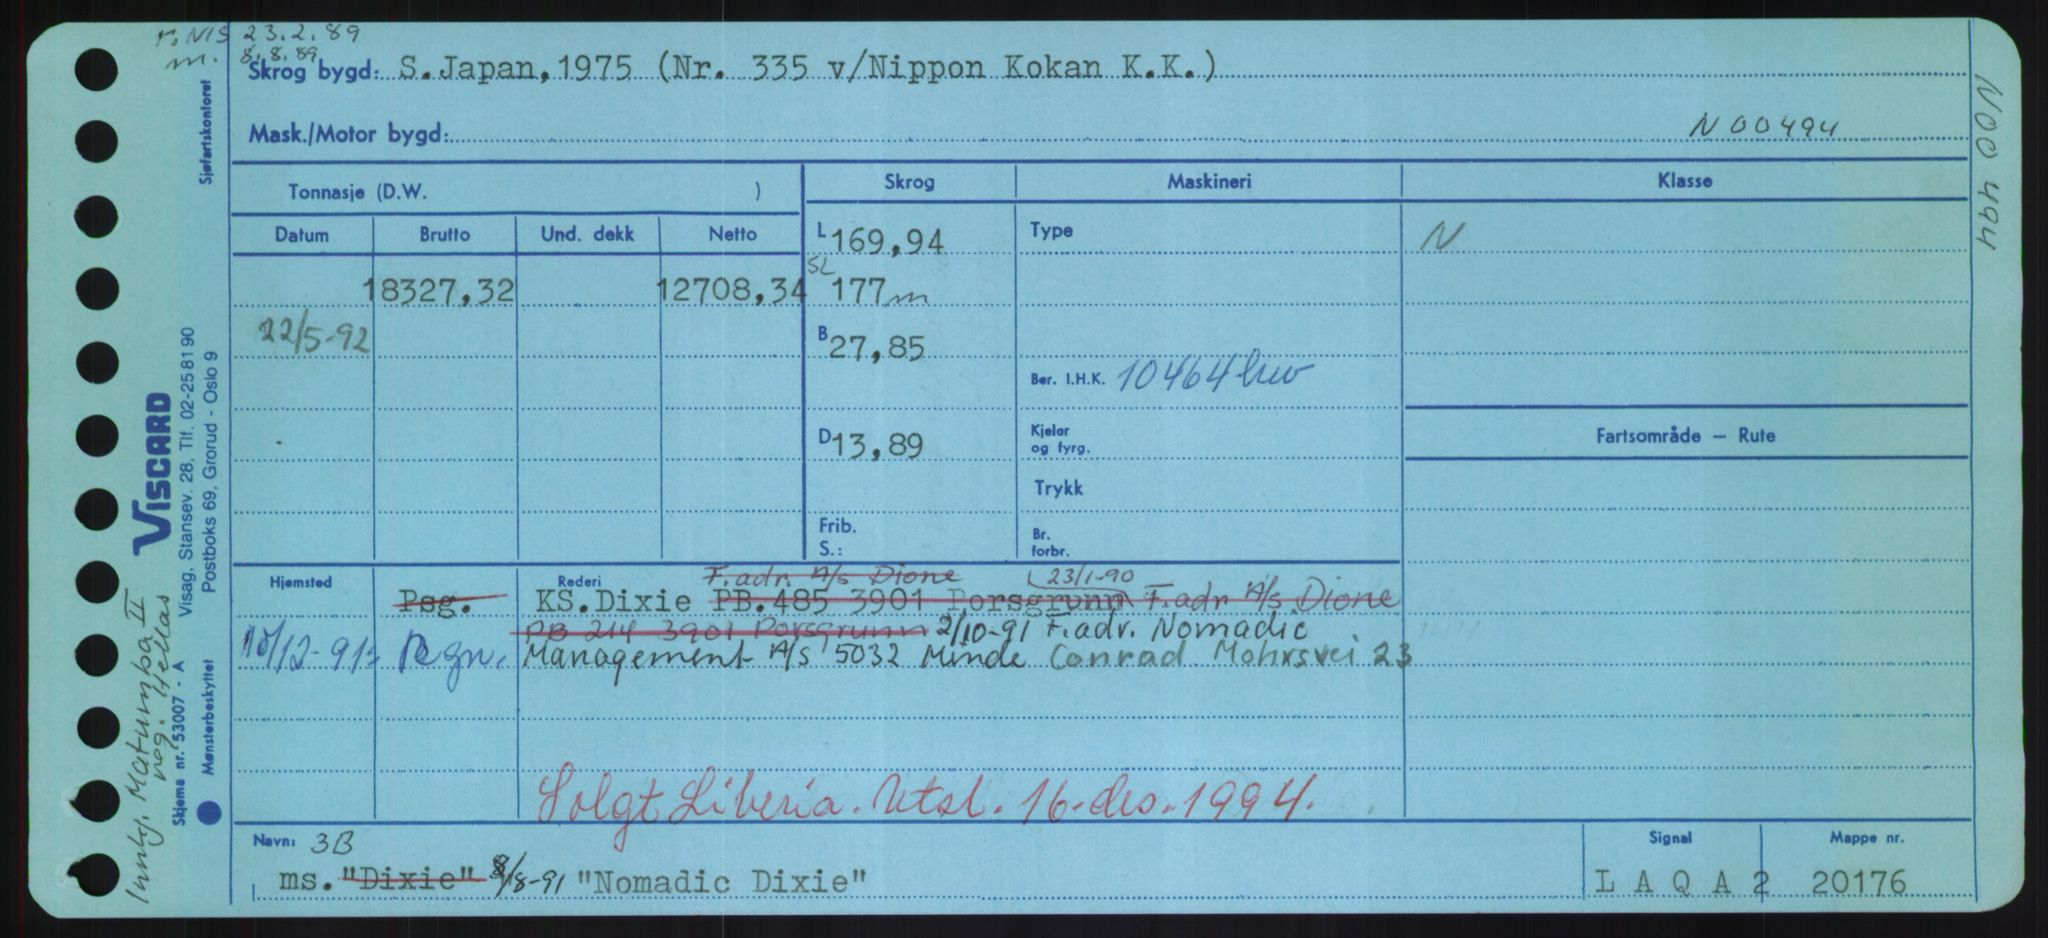 r. NIS 23.2.89
m. 8.8.89
Skrog bygd: S.Japan,1975 (Nr. 335 v/Nippon Kokan K.K.)
Mask./Motor bygd: N00494
N00494
Tonnasje (D.W. )
Skrog Maskineri Klasse
Datum Brutto Und. dekk Netto
L 169,94 Type N
18327,32 12708,34 SL 177 m
22/5-92
B 27,85
Ber. I.H.K. 10464
D 13,89 Kjeler og fyrg.
Fartsområde – Rute
Trykk
Frib.
S.:
Br. forbr.
Hjemsted Rederi F.adr. A/s Dione 23/1-90
Psg. KS.Dixie PB.485 3901 Porsgrunn F.adr A/s Dione
PB 214 3901 Porsgrunn 2/10-91 F.adr. Nomadic
10/12-91: Bgn. Management A/S 5032 Minde Conrad Mohrsvei 23
Solgt Liberia. Utsl. 16. des. 1994.
Navn: 3B
ms. "Dixie" 8/8-91 "Nomadic Dixie"
Signal
L A Q A 2
Mappe nr.
20176
Sjøfartskontoret
VISCARD
Visag, Stansev. 28, Tlf. 02-25 81 90
Postboks 69, Grorud - Oslo 9
Skjema nr. 53007 - A
Mønsterbeskyttet
Matumba II
reg. Hellas